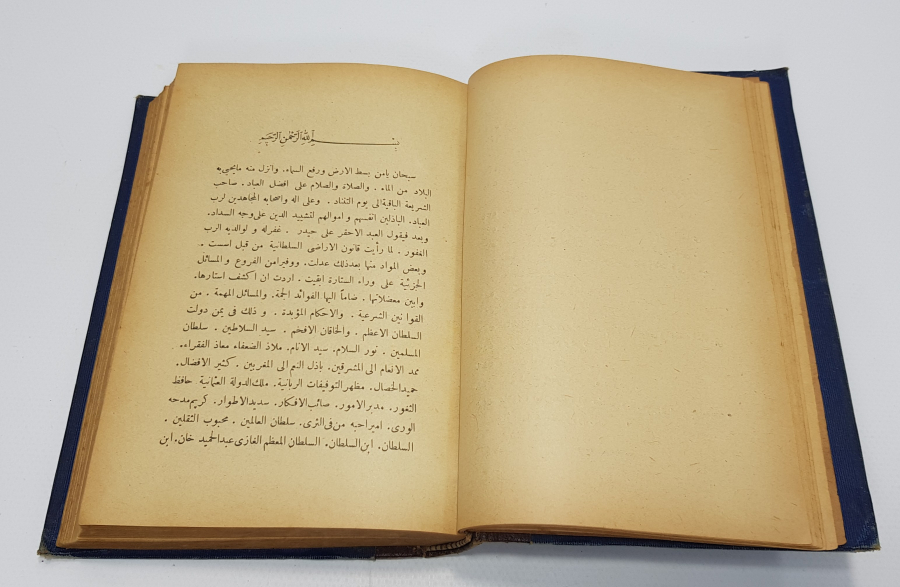 بسم الله الرحمن الرحيم
سبحان يامن بسط الارض ورفع السماء. وانزل منه مايحيى به
البلاد من الماء . والصلاة والصلام على افضل العباد . صاحب
الشريعة الباقية الى يوم التناد . وعلى اله واصحابه المجاهدين لرب
العباد. الباذلين انفسهم و اموالهم لتشييد الدين على وجه السداد.
وبعد فيقول العبد الاحقر على حيدر . غفرله و لوالديه الرب
الغفور . لما رأيت قانون الاراضى السلطانية من قبل اسست .
وبعض المواد منها بعدذلك عدلت. ووفيرا من الفروع و المسائل
الجزئية على وراء الستارة ابقيت . اردت ان اكشف استارها.
وابين معضلاتها . ضاماً اليها الفوائد الجمة. والمسائل المهمة . من
القوانين الشرعية . والاحكام المؤبدة . و ذلك فى يمن دولت
السلطان الاعظم . والخاقان الافخم . سيد السلاطين . سلطان
المسلمين . نور السلام. سيد الانام. ملاذ الضعفاء معاذ الفقراء.
ممد الانعام الى المشرقين. باذل النعم الى المغربين . كثير الافضال.
حميد الخصال. مظهر التوفيقات الربانية. ملك الدولة العثمانية حافظ
الثغور. مدبر الامور. صائب الافكار. سديد الاطوار. كريم مدحه
الورى. امير احبه من فى الثرى. سلطان العالمين . محبوب الثقلين .
السلطان. ابن السلطان. السلطان المعظم الغازى عبد الحميد خان. ابن